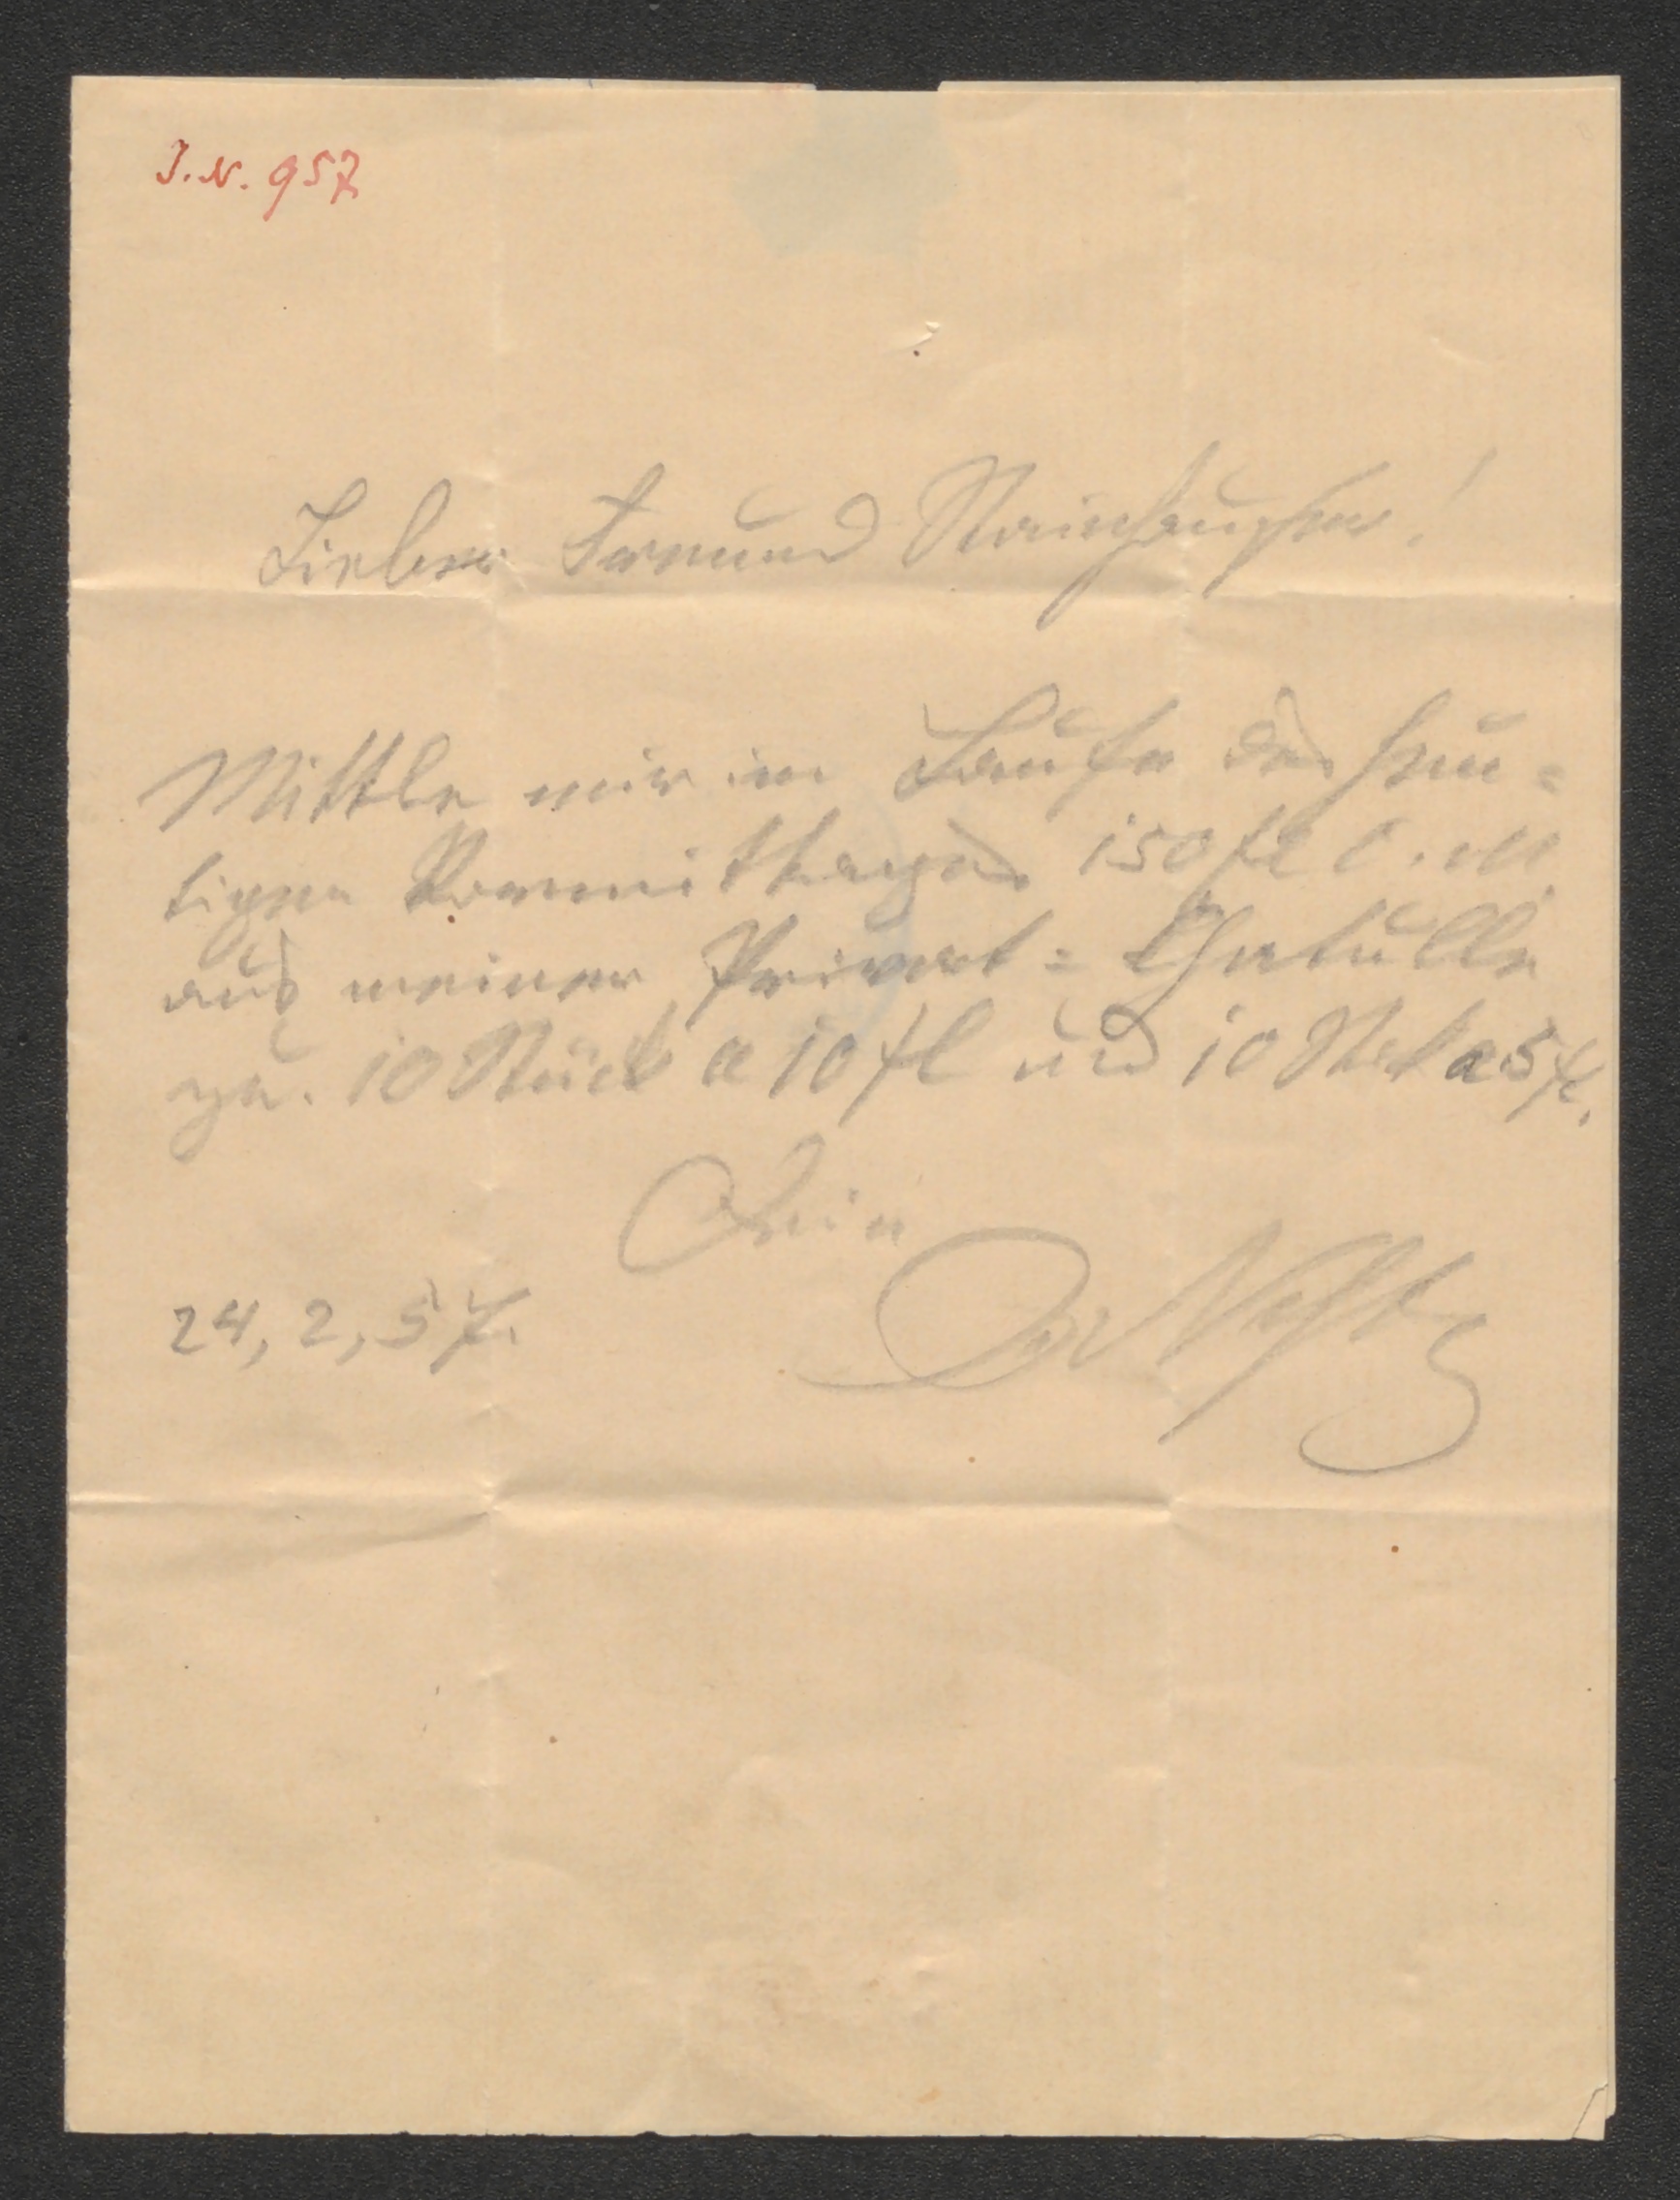 J. N. 957
Lieber Freund Stainhauser!
Mittle mir im Laufe des heu=
tigen Vormittages 150 fl C. M.
aus meiner Privat=Chatulle
zu 10 Stück a 10 fl und 10 Stck a 5 fl.
Dein
24, 2, 57.